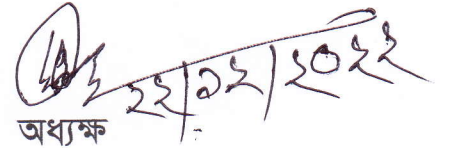 ২২|১২|২০২২
অধ্যক্ষ